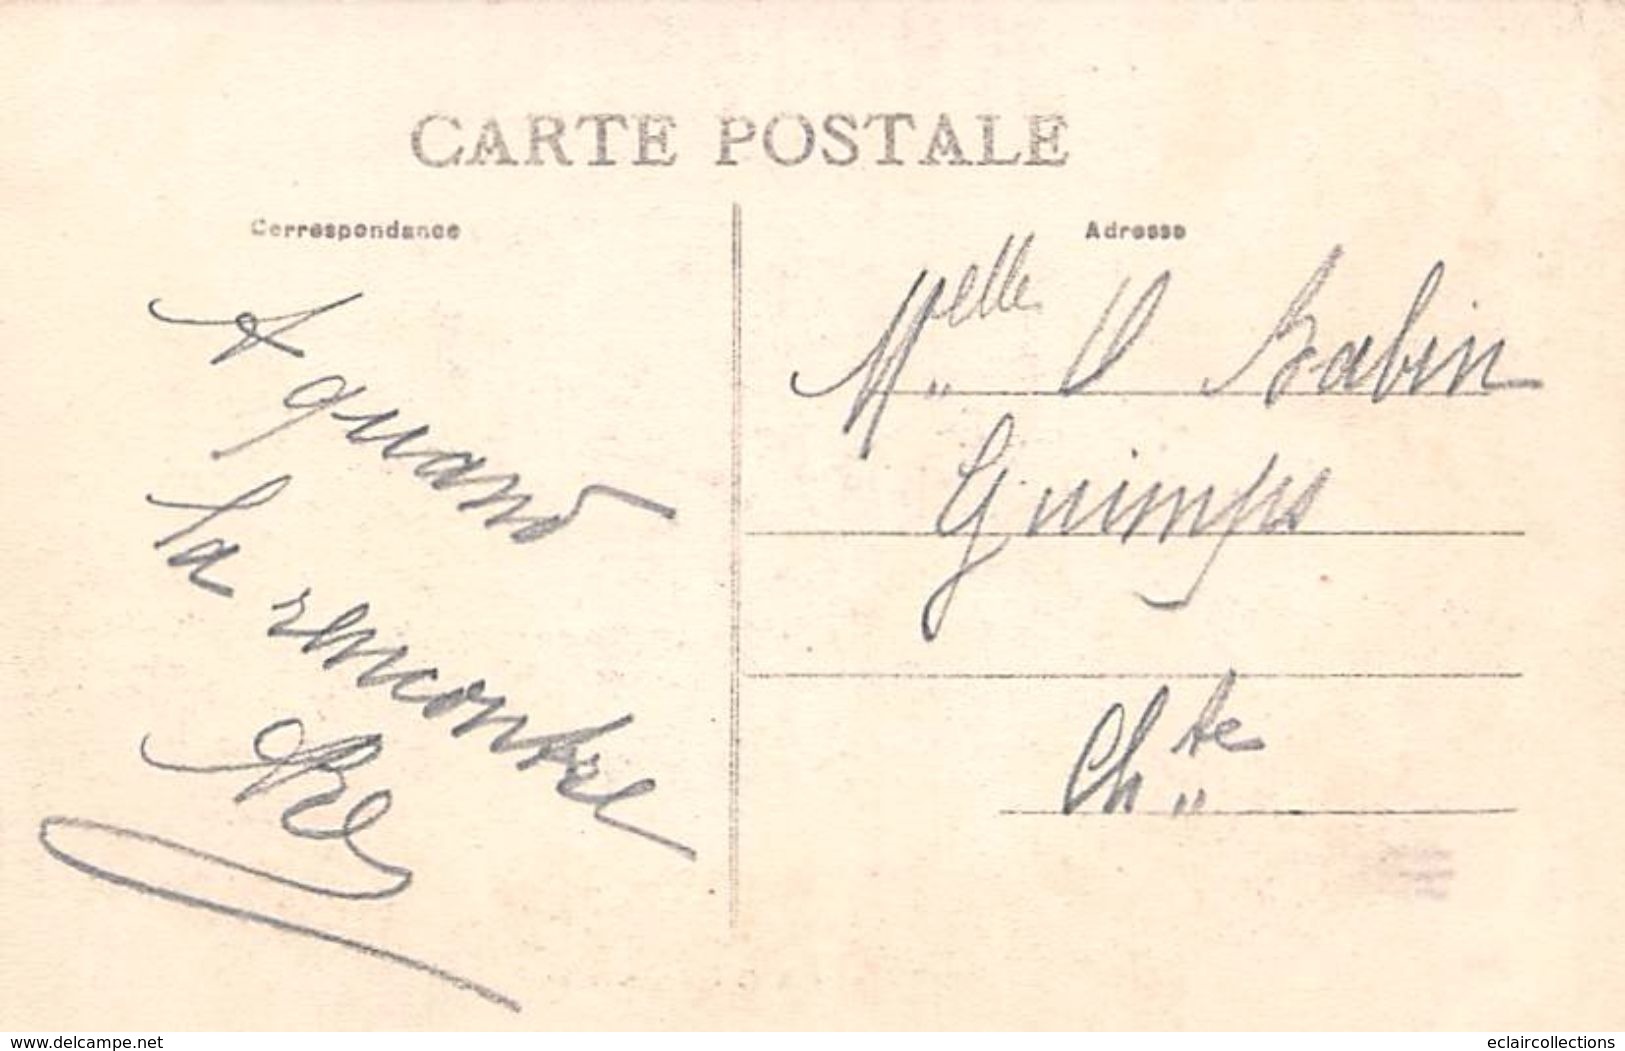 CARTE POSTALE
Correspondance
A quand
la rencontre
Adresse
Melle V Babin
Guimps
Chte
www.delcampe.net
eclaircollections